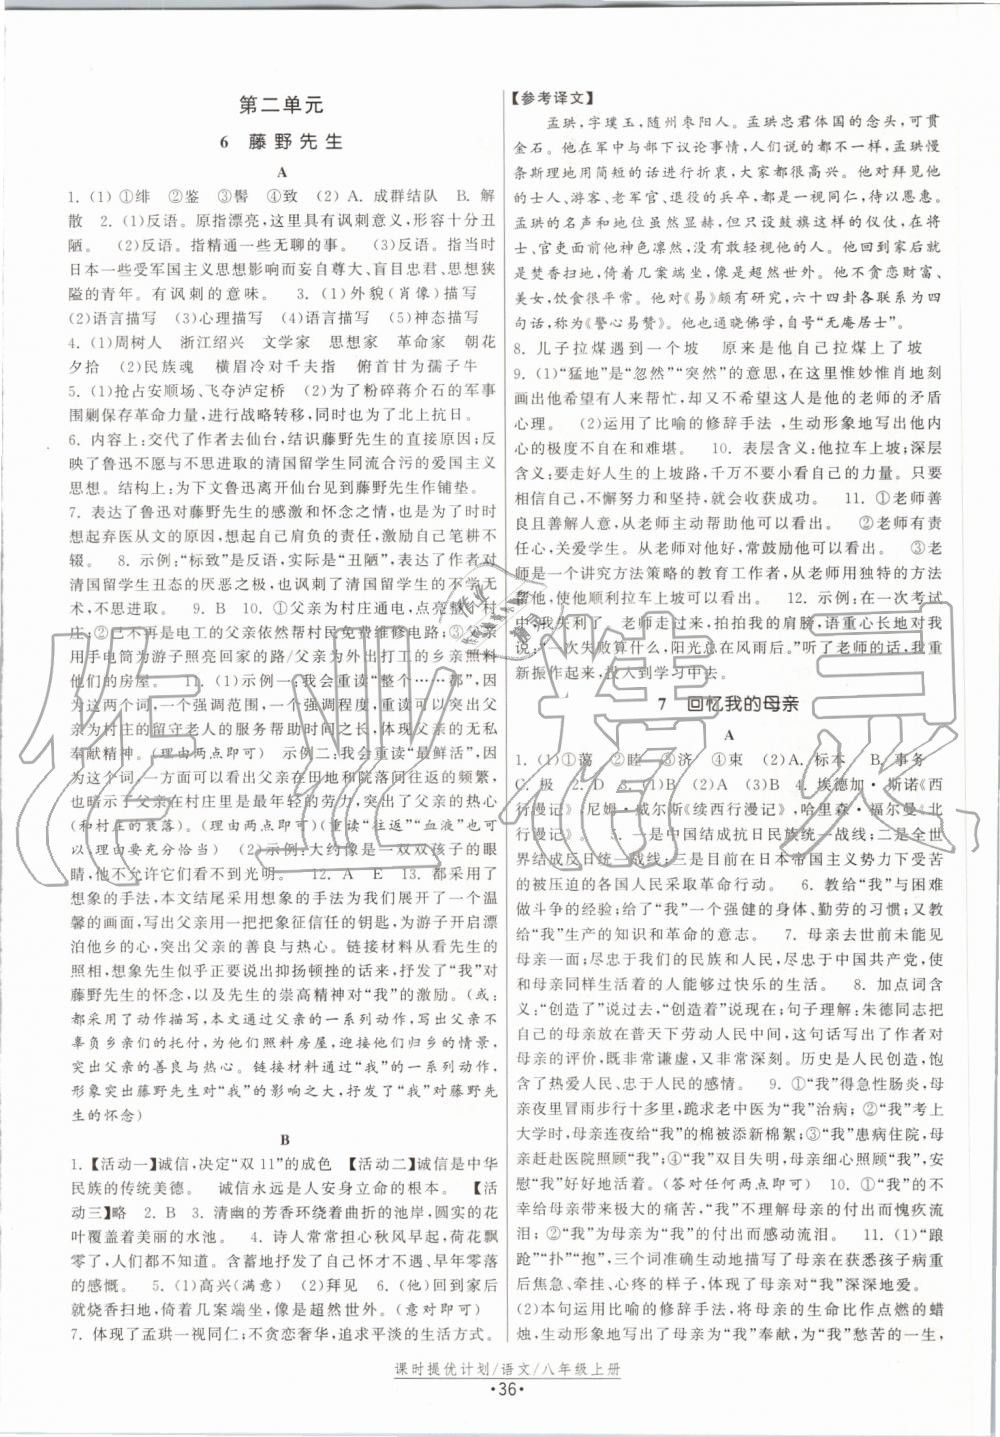 第二单元
6　藤野先生
A
1. (1) ①绯　②鉴　③髻　④致　(2) A. 成群结队　B. 解
散　2. (1)反语。原指漂亮,这里具有讽刺意义,形容十分丑
陋。　(2)反语。指精通一些无聊的事。　(3)反语。指当时
日本一些受军国主义思想影响而妄自尊大、盲目忠君、思想狭
隘的青年。有讽刺的意味。　3. (1)外貌(肖像)描写
(2)语言描写　(3)心理描写　(4)动作描写　(5)神态描写
4. (1)周树人　浙江绍兴　文学家　思想家　革命家　朝花
夕拾　(2)民族魂　横眉冷对千夫指　俯首甘为孺子牛
5. (1)抢占安顺场、飞夺泸定桥　(2)为了粉碎蒋介石的军事
围剿保存革命力量,进行战略转移,同时也为了北上抗日。
6. 内容上:交代了作者去仙台,结识藤野先生的直接原因;反
映了鲁迅不屑与不思进取的清国留学生同流合污的爱国主义
思想。结构上:为下文鲁迅离开仙台见到藤野先生作铺垫。
7. 表达了鲁迅对藤野先生的感激和怀念之情,也是为了时时
想起弃医从文的原因,想起自己肩负的责任,激励自己笔耕不
辍。　8. 示例:“标致”是反语,实际是“丑陋”,表达了作者对
清国留学生丑态的厌恶之极,也讽刺了清国留学生的不学无
术、不思进取。　9. B　10. ①父亲为村庄通电,点亮整个村
庄;②已不再是电工的父亲依然帮村民免费维修电路;③父亲
用手电筒为游子照亮回家的路/父亲为外出打工的乡亲照料
他们的房屋。　11. (1)示例一:我会重读“整个……都”,因
为这两个词,一个强调范围,一个强调程度,可以突出父亲
为村庄的留守老人的服务帮助时间之长,体现父亲的无私
奉献精神。(理由两点即可)　示例二:我会重读“最鲜活”,因
为这个词,一方面可以看出父亲在田地和院落间往返的频繁,
也暗示了父亲在村庄里是最年轻的人,突出了父亲的热心
(和村庄的衰落)。(理由两点即可)(重读“往返”“血液”也可
以　理由要充分恰当)　(2)示例:大约像是一双双孩子的眼
睛,他不允许它们看不到光明。　12. A　E　13. 都采用了
想象的手法,本文结尾采用想象的手法为我们展开了一个温
馨的画面,写出父亲用一把把象征信任的钥匙,为游子打开漂
泊他乡的心,突出父亲的善良与热心。链接材料从看先生的
照相,想象先生仿佛正要说出抑扬顿挫的话来,抒发了“我”对
藤野先生的怀念,以及先生的崇高精神对“我”的激励。(或:
都采用了动作描写,本文通过父亲的一系列动作,写出父亲不
辜负乡亲们的托付,为他们照料房屋,迎接他们归乡的情景,
突出父亲的善良与热心。链接材料通过“我”的一系列动作,
形象突出藤野先生对“我”的影响之大,抒发了“我”对藤野先生
的怀念)
B
1. 【活动一】诚信,决定“双11”的成色　【活动二】诚信是中华
民族的传统美德。　诚信永远是人安身立命的根本。　【活
动三】略　2. B　3. 清幽的芳香环绕着曲折的池岸,圆实的花
叶覆盖着美丽的水池。　4. 诗人常常担心秋风早起,荷花飘
零了,来不及欣赏,抒发了自己怀才不遇、早年零落
的感慨。　5. (1)高兴(满意)　(2)拜见　6. (他)回到家后
就烧香扫地,倚着几案端坐,像是超然世外。(意对即可)
7. 体现了孟珙一视同仁;不贪恋奢华,追求平淡的生活方式。
【参考译文】
孟珙,字璞玉,随州枣阳人。孟珙忠君体国的念头,可贯
金石。他在军中与部下议论事情,人们说的都不一样,孟珙慢
条斯理地用简短的话进行折中,大家都很满意。他对拜见他
的士人、游客、老军官、退役的兵卒,都是一视同仁,待以恩惠。
孟珙的名声和地位虽然显赫,但只设鼓旗这样的仪仗,在将
士、官吏面前他神色凛然,没有敢大声出气的。他回到家后就
是焚香扫地,倚着几案端坐,像是超然世外。他不贪恋财货、
美女,饮食很平常。他对《易》颇有研究,六十四卦各联系为四
句话,称为《警心易赞》。他也通晓佛学,自号“无庵居士”。
8. 儿子拉煤遇到一个坡　原来是他自己拉煤上了坡
9. (1)“猛地”是“忽然”“突然”的意思,在这里惟妙惟肖地刻
画出他希望有人来帮忙,却又不希望这人是他的老师的矛盾
心理。　(2)运用了比喻的修辞手法,生动形象地写出他内
心的极度不自在和难堪。　10. 表层含义:他拉车上坡;深层
含义:要走好人生的上坡路,千万不要小看自己的力量。只要
相信自己,不懈努力和坚持,就会收获成功。　11. ①老师善
良且善解人意,从老师主动帮助他可以看出。　②老师有责
任心,关爱学生。从老师对他好,常鼓励他可以看出。　③老
师是一个讲究方法策略的教育工作者,从老师用独特的方法
帮他,使他顺利拉车上坡可以看出。　12. 示例:在一次考试
中,我失利了　老师走过来,拍拍我的肩膀,语重心长地对我
说:“一次失败算什么,阳光总在风雨后。”听了老师的话,我重
新振作起来,投入到学习中去。
7　回忆我的母亲
A
1. (1)①荡　②睦　③济　④束　(2)A. 标本　B. 事务
C. 极　2. D　3. (1)B　(2)A　(3)B　4. 埃德加·斯诺《西
行漫记》,尼姆·威尔斯《续西行漫记》,哈里森·福尔曼《北
行漫记》。　5. 一是中国结成抗日民族统一战线;二是全世
界结成反法西斯统一战线;三是目前在日本帝国主义势力下受苦
的被压迫的各国人民采取革命行动。　6. 教给“我”与困难
做斗争的经验;给了“我”一个强健的身体、勤劳的习惯;又教
给“我”生产的知识和革命的意志。　7. 母亲去世前未能见
母亲一面;尽忠于我们的民族和人民,尽忠于中国共产党,使
和母亲同样生活着的人能够过快乐的生活。　8. 加点词含
义:“创造了”说过去,“创造着”说现在;句子理解:朱德同志把
自己的母亲放在普天下劳动人民中间,这句话写出了作者对
母亲的评价,既非常谦虚,又非常深刻。历史是人民创造的,
饱含热爱人民、崇敬人民的感情。　9. ①“我”得急性肠炎,母
亲夜里冒雨步行十多里,跪求老中医为“我”治病;②“我”考上
大学时,母亲连夜给“我”的棉被添新棉絮;③“我”患病住院,母
亲赶赴医院照顾“我”;④“我”双目失明,母亲细心照顾“我”,安
慰“我”好好地活着。(答对任何两点即可)　10. 为“我”的不
幸给母亲带来的痛苦而流泪,为母亲的付出而愧疚流泪
⑥“我”为母亲为“我”的付出而感动流泪。　11. (1)“踉
跄”“扑”“抱”,三个词准确生动地描写了母亲在获悉孩子病
重后焦急、牵挂、心疼的样子,体现了母亲对“我”深深地爱。
(2)本句运用比喻的修辞手法,将母亲的生命比作点燃的蜡
烛,生动形象地写出了母亲为“我”奉献,为“我”愁苦的一生,
课时提优计划/语文/八年级上册
·36·
作业精灵